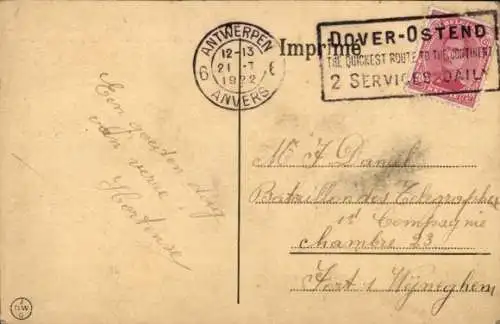 ANTWERPEN
12-13
6 21-7 6
1922
ANVERS
Imprimé
DOVER-OSTEND
THE QUICKEST ROUTE TO THE CONTINENT
2 SERVICES DAILY
Een goeden dag
van verre
Hortense
Mr J Daniel
Bataillon des Telegrafistes
1st Compagnie
chambre 23
Fort 1 Wyneghem